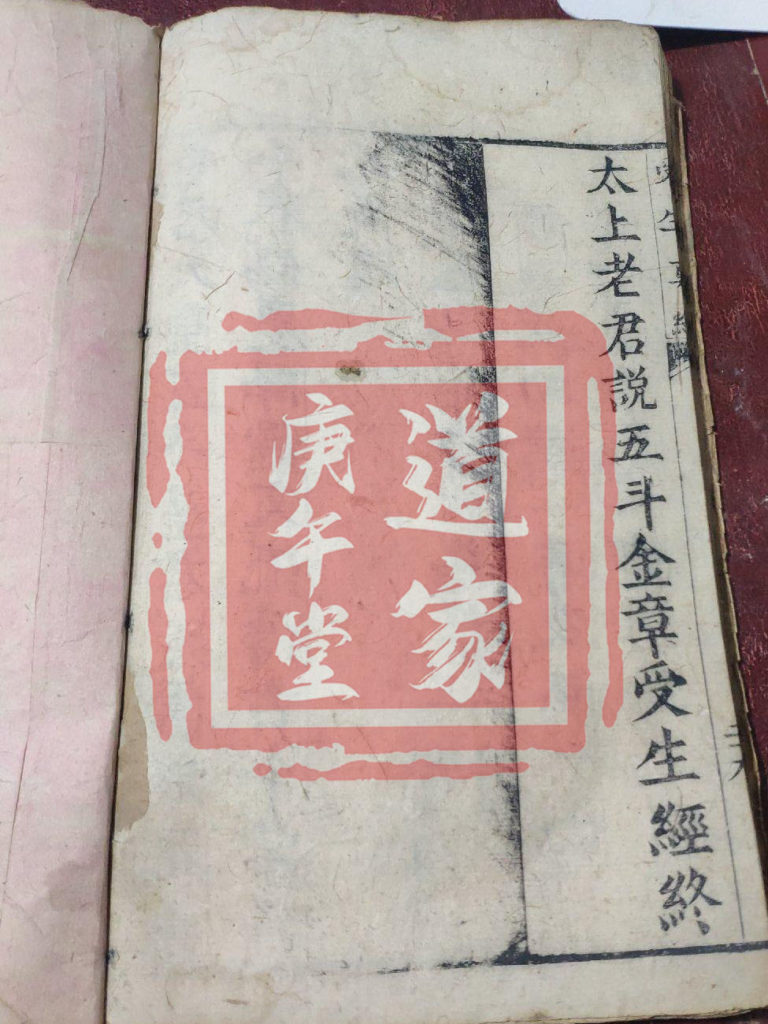 太上老君説五斗金章受生經終
道家
庚午堂